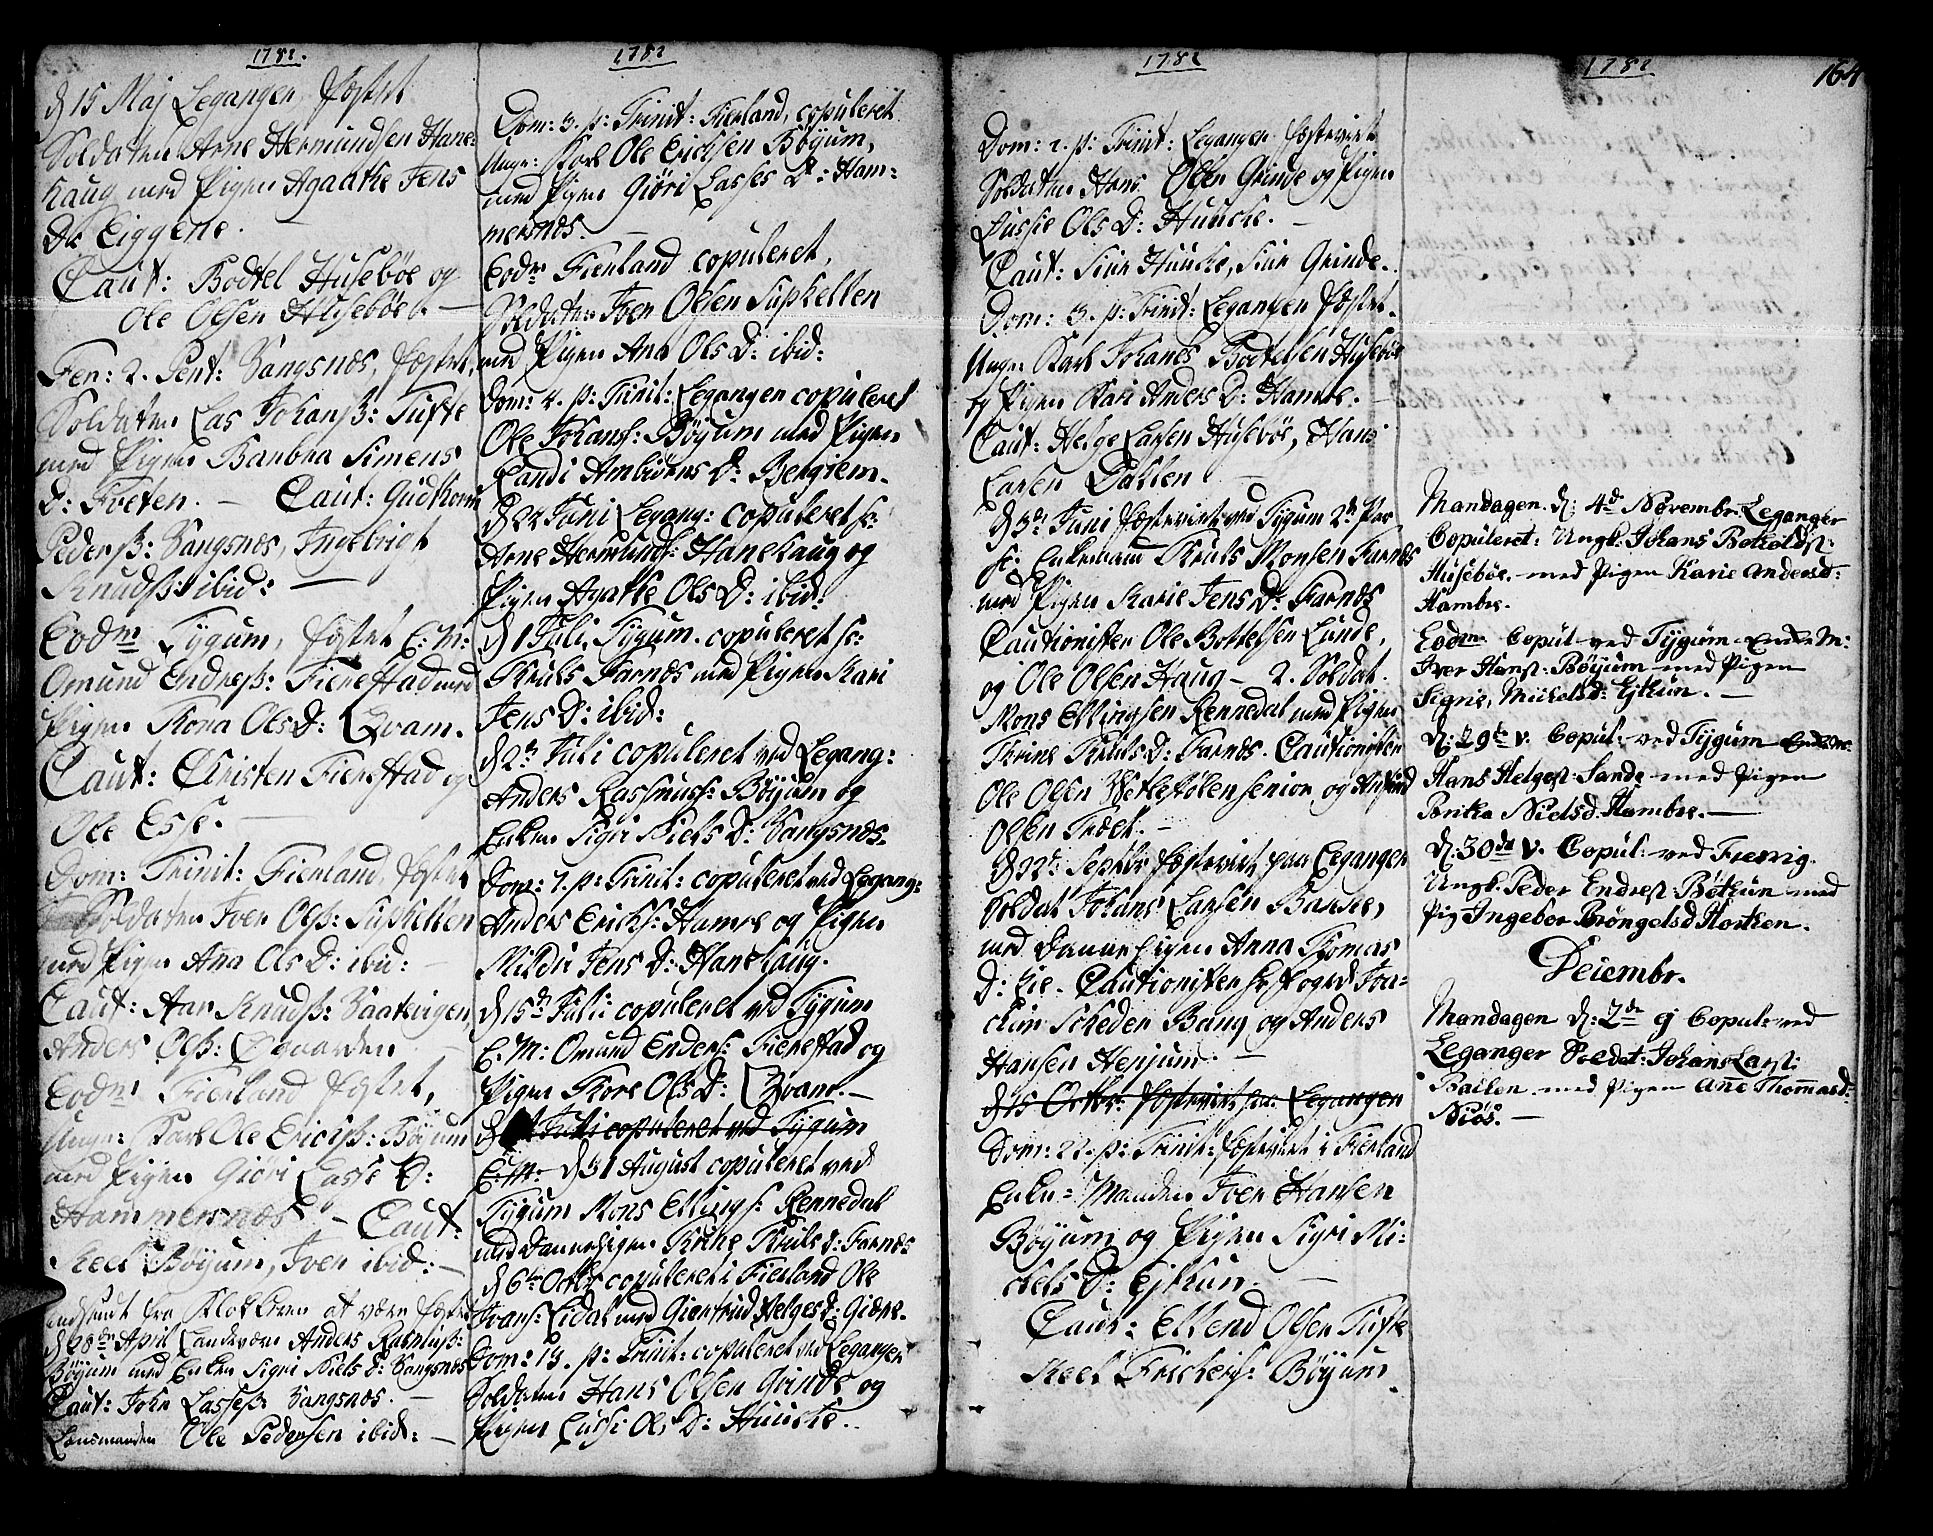 1782.
d 15 Maj Leganger, fæstet
Soldaten Arne Hermundsen Hane-
haug med Pigen Agaathe Jens
Dr Eiggene.
Caut: Bodtel Husebøe og
Ole Olsen Husebøe. —
Fer: 2. Pent: Vangsnæs, fæstet,
Soldaten Las Johanß: Tufte
med Pigen Barbra Simens
D: Foeten. — Caut: Gudthorm
Pederß: Vangsnæs, Ingebrigt
Knudß: ibid: —
Eodm Tygum, fæstet E: M:
Omund Endreß: Fierestad med
Pigen Thora Ols D: Qvam.
Caut: Christen Fierestad og
Ole Esse. —
Dom: Trinit: Fierland, fæstet
Soldaten Iver Olß: Suphellen
med Pigen Aña Ols D: ibid: —
Caut: Aar Knudß: Vaatevigen
Anders Olß: Øygaarden —
Eodm Fierland fæstet,
Unge: Karl Ole Ericß: Bøyum
med Pigen Giøri Lasse D:
Hammersnæs. — Caut:
Neel Bøyum, Iver ibid: —
indsendt fra Klokkeren at være fæstet
d 28de April Landværn Anders Rasmuß:
Bøyum med Enken Sigri Niels D: Vangsnæs
Caut: John Lasseß: Vangsnæs. —
Lensmanden Ole Pedersen ibid: —
1782
Dom: 3. p: Trinit: Fierland, copuleret
Unge: Karl Ole Erichsen Bøyum,
med Pigen Giøri Lasses D: Ham-
mersnæs. —
Eodm Fierland copuleret,
Soldaten Iver Olsen Suphellen
med Pigen Ana Ols D: ibid:
Dom: 4. p: Trinit: Leganger copuleret
Ole Johans: Bøyum med Pigen
Randi Ambiørns D: Bergiem.
d 24 Juni Legang: copuleret s:
Arne Hermunds: Hanehaug og
Pigen Agathe Ols D: ibid:
d 1 Juli, Tygum. copuleret s:
Truls Farnæs med Pigen Kari
Jens D: ibid:
d 2de Juli copuleret ved Legang:
Anders Rasmuss: Bøyum og
Enken Sigri Niels D: Vangsnæs.
Dom: 7. p: Trinit: copuleret ved Legang:
Anders Erichs: Hamre og Pigen
Mildri Jens D: Hanehaug.
d 15de Juli copuleret ved Tygum
E: M: Omund Enders: Fierestad og
Pigen Thore Ols D: Qvam. —
d Juli copuleret ved Tygum
E: M: d 31 August copuleret ved
Tygum Mons Ellings: Rennedal
med Dannepigen Thrine Truls D: Farnæs
d 6te Octbr copuleret i Fierland Ole
Ivers: Lidal med Giertrud Helges D: Giære.
Dom: 19. p: Trinit: copuleret ved Leganger
Soldaten Hans Olsen Grinde og
Pigen Lussi Ols D: Huuche.
1782
Dom: 2. p: Trinit: Leganger fæstevirt
Soldaten Hans Olsen Grinde og Pigen
Lussie Ols D: Huuche. —
Caut: Siur Huuche, Siur Grinde.
Dom: 3. p: Trinit: Leganger fæstet.
Unge Karl Johanes Bodtelsen Husebøe
og Pigen Kari Anders D: Hamre. —
Caut: Helge Larsen Husebøe, Hans
Larsen
d 3de Juni fæstevirt ved Tygum 2de Par
s: Enkemand Truls Monsen Farnæs
med Pigen Karie Jens D: Farnæs
Cautionister Ole Bottelsen Lunde,
og Ole Olsen Haug — 2. Soldat
Mons Ellingsen Rennedal med Pigen
Thrine Truls D: Farnæs. Cautionister
Ole Olsen Vetlestølen senior og
Olsen Træet. —
d 22de Septbr fæstevirt paa Leganger
Soldat Johans Larsen Baalen,
med Dannepigen Anna Thomas
D: Eie. Cautionister
chim Scheder Bang og Anders
Hansen Henjum. —
d 15 Octbr: fæstevirt paa Leganger
Dom: 22. p: Trinit: fæstevirt i Fierland
Enke-Manden Iver Hansen
Bøyum og Pigen Sigri Mi-
chels D: Ejthun. —
Caut: Ellend Olsen Tufte
Neel Bøyum
1782
164
Mandagen. d: 4de Novembr. Leganger
Copuleret: Ungk. Johans Botholdst:
Husebøe. med Pigen Karie Andersd:
Hambre.
Eodm Copul ved Tygum Enke M:
Iver Hanst: Bøyum med Pigen
Signe, Michelsd: Ejthun. —
d: 29de v. Copul: ved Tygum
Hans Helgest: Sande med Pigen
Brithe Nielsd. Hambre. —
d: 30de v. Copul: ved Fierrig.
Ungk. Peder Endrest: Bøthun med
Pig Ingebor Brøngelsd Horthen.
Decembr.
Mandagen d: 2de ej Copul: ved
Leganger Soldat: Johans Larst:
Baalen med Pigen Añe Thom̃asd:
Niøs. —